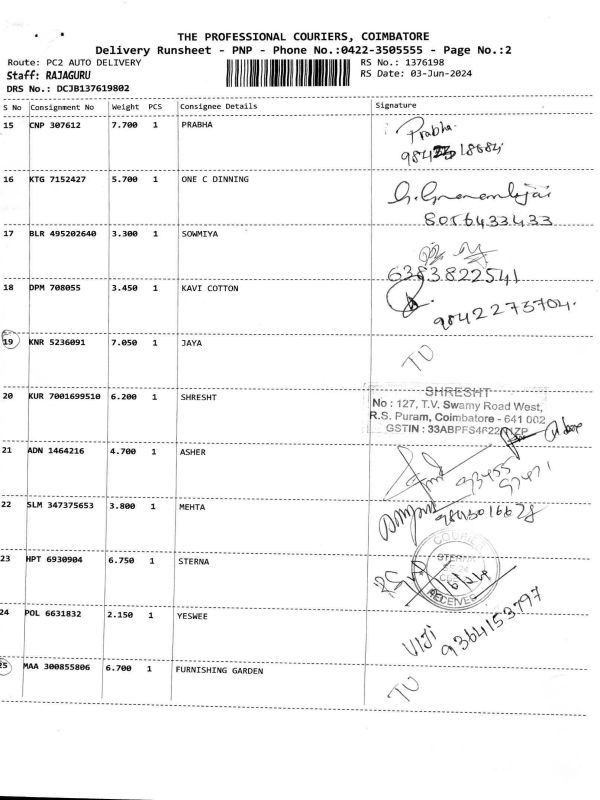 THE PROFESSIONAL COURIERS, COIMBATORE
Delivery Runsheet - PNP - Phone No.:0422-3505555 - Page No.:2
Route: PC2 AUTO DELIVERY RS No.: 1376198
Staff: RAJAGURU RS Date: 03-Jun-2024
DRS No.: DCJB137619802
S No Consignment No Weight PCS Consignee Details Signature
15 CNP 307612 7.700 1 PRABHA Prabha
16 KTG 7152427 5.700 1 ONE C DINNING
8056433433
17 BLR 495202640 3.300 1 SOWMIYA
6383822541
18 DPM 708055 3.450 1 KAVI COTTON
9842273704.
19 KNR 5236091 7.050 1 JAYA TU
20 KUR 7001699510 6.200 1 SHRESHT SHRESHT
No : 127, T.V. Swamy Road West,
R.S. Puram, Coimbatore - 641 002
GSTIN :
21 ADN 1464216 4.700 1 ASHER
93455
97471
22 SLM 347375653 3.800 1 MEHTA
23 HPT 6930904 6.750 1 STERNA COURIER
STERNA
RECEIVED
24 POL 6631832 2.150 1 YESWEE VIJI
9364153797
25 MAA 300855806 6.700 1 FURNISHING GARDEN TU